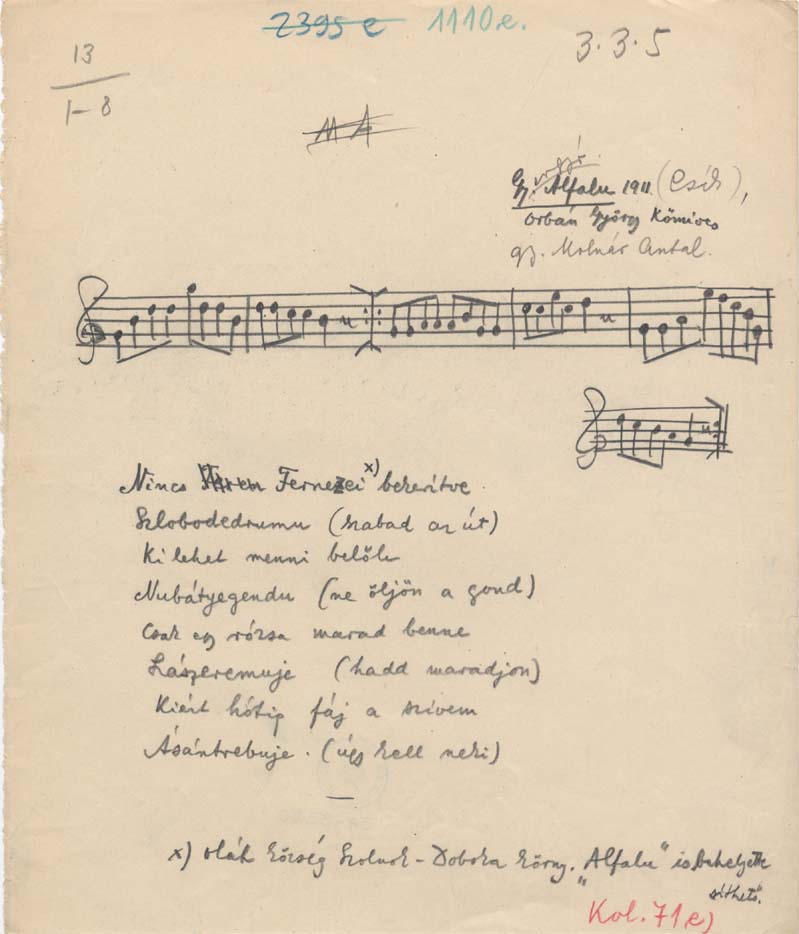 2395 e 1110e.
13
1-8
3.3.5
MA
Gy. Alfalu 1911. (Csík),
Orbán György Kőmives
gy. Molnár Antal.
Nincs Fernezei x) bekerítve
Szlobodedrumu (szabad az út)
Ki lehet menni belőle
Nubátyegendu (ne öljön a gond)
Csak egy rózsa marad benne
Lászeremuje (hadd maradjon)
Kiért hótig fáj a szívem
Ásántrebuje. (úgy kell neki)
x) oláh község Szolnok-Doboka körny. "Alfalu" is behelyette
síthető.
Kol. 71e)